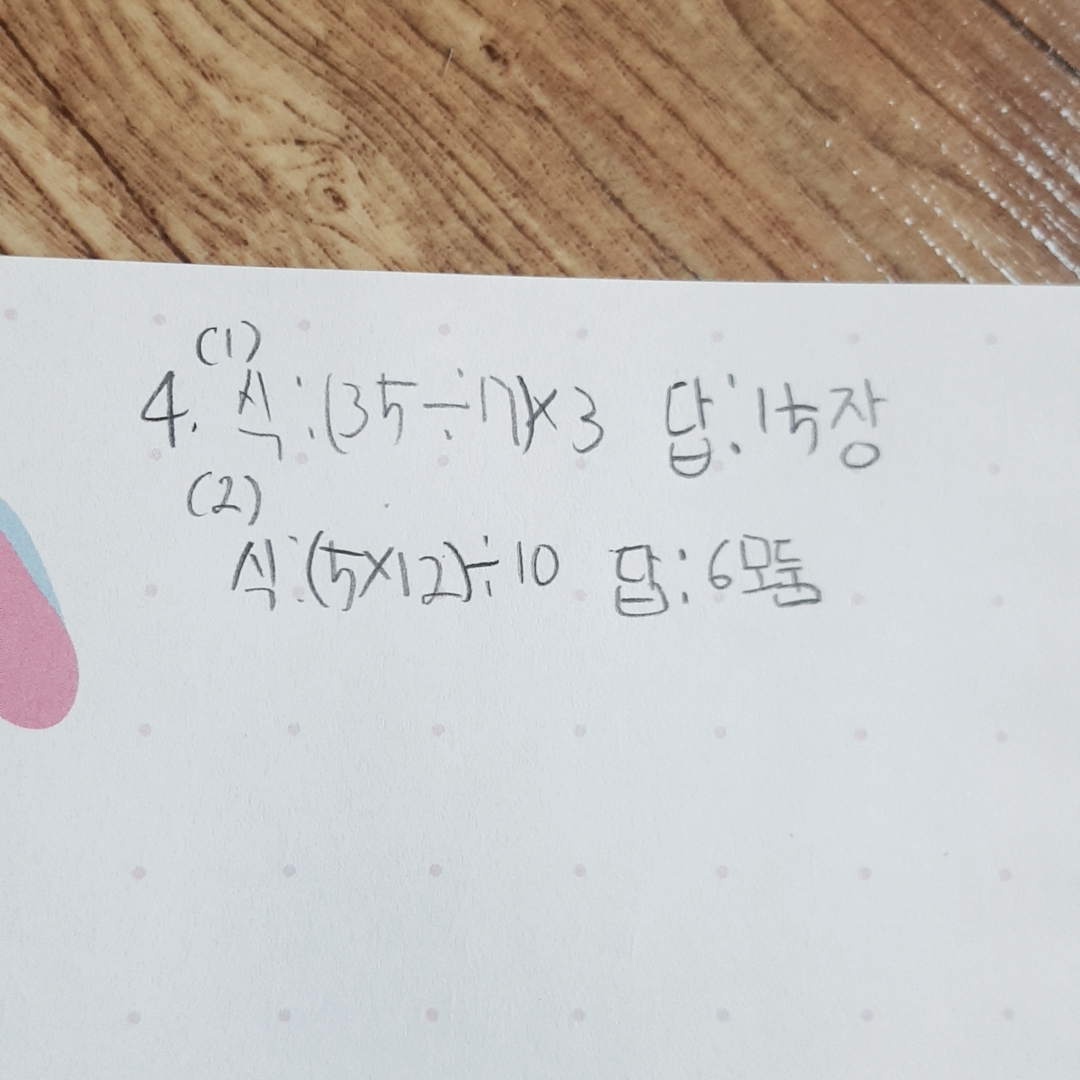 (1)
4. 식:(35÷7)×3 답:15장
(2)
식:(5×12)÷10 답:6모둠